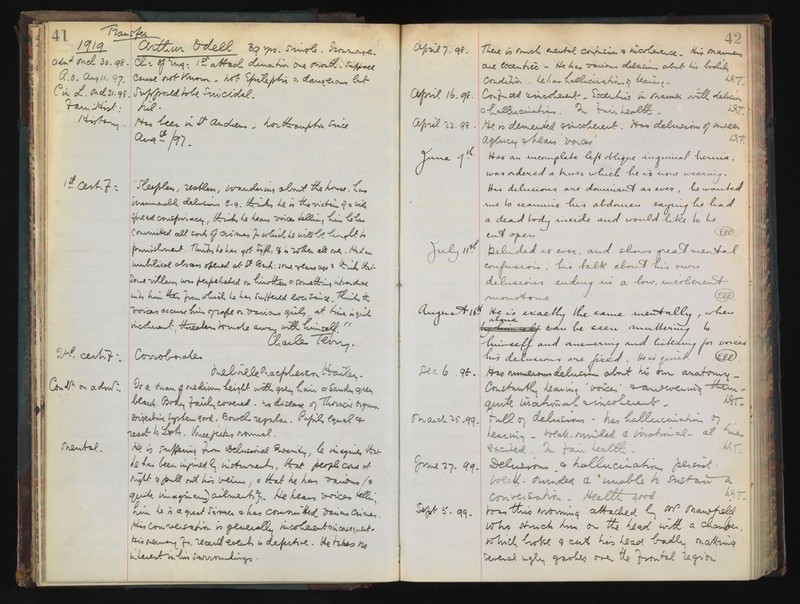 41
Transfer
1919 Arthur Odell 39 yrs. Single. Ironmonger.
adm. March 30. 98. Ch: of Eng: 1st attack duration one month. Suppose
R.O. Aug 11. 97. Cause not known. Not Epileptic or dangerous but
C in L. March 31. 98. Supposed to be Suicidal.
Fam: Hist: Nil.
History. Has been in St Andrews. Northampton since
Aug /97.
1st Certif: "Sleepless, restless, wandering about the house. Has
innumerable delusions e.g. thinks he is the victim of a wide
spread conspiracy, thinks he hears voices telling him he has
committed all sorts of crimes for which he will be brought to
punishment. Thinks he has got Syph: & is rotten all over. Had an
umbilical abscess opened at St some years ago & thinks that
some villainy was perpetrated on him then & something introduced
into him then from which he has suffered ever since. Thinks the
voices accuse him of rape on various girls, at times is quite
incoherent, threatens to make away with himself"
Charles
2nd Certif: Corroborates
Melville Macpherson
Condn on admn: Is a man of medium height with grey hair & Sandy grey
beard. Body fairly covered. No disease of Thoracic organs
digestive system good. Bowels regular. Pupils equal &
react to light. Knee jerks normal.
Mental. He is suffering from Delusional Insanity, he imagines that
he has been injured by instruments, that people come at
night & pull out his veins, & that he has various (&
quite imaginary) ailments. He hears voices telling
him he is a great Sinner & has committed various crimes.
His conversation is generally incoherent
His memory for recent events is defective. He takes no
interest in his surroundings.
42
April 7. 98. There is much mental confusion & incoherence. His manners
are eccentric - He has various delusions about his bodily
condition. He has hallucinations of hearing.
April 16. 98. Confused & incoherent. Eccentric in manner with delusions
& hallucinations. In fair health.
April 23. 98. He is demented & incoherent. Has delusions of unseen
agency & hears 'voices'
June 9th Has an incomplete left oblique inguinal hernia;
was ordered a truss which he is now wearing.
His delusions are dominant as ever. he wanted
me to examine his abdomen saying he had
a dead body inside and would like to be
cut open
July 11th Deluded as ever, and shows great mental
confusion, his talk about his own
delusions ending in a low, incoherent
monotone
August 16th He is exactly the same mentally, when
alone can be seen muttering to
himself and answering and listening for voices
his delusions are fixed. He is quiet
Dec 6. 98. Has numerous delusions about his own anatomy -
Constantly hearing 'voices' & answering them -
quite irrational & incoherent -
March 25. 99. Full of delusions - has hallucinations of
hearing - weak-minded & irrational - at times
excited. In fair health -
June 27. 99. Delusions & hallucinations persist.
weak-minded & unable to sustain a
conversation - Health good
Sept 5. 99. Was this morning attacked by Mr
who struck him on the head with a chamber.
which broke & cut his head badly making
several ugly gashes over the frontal region